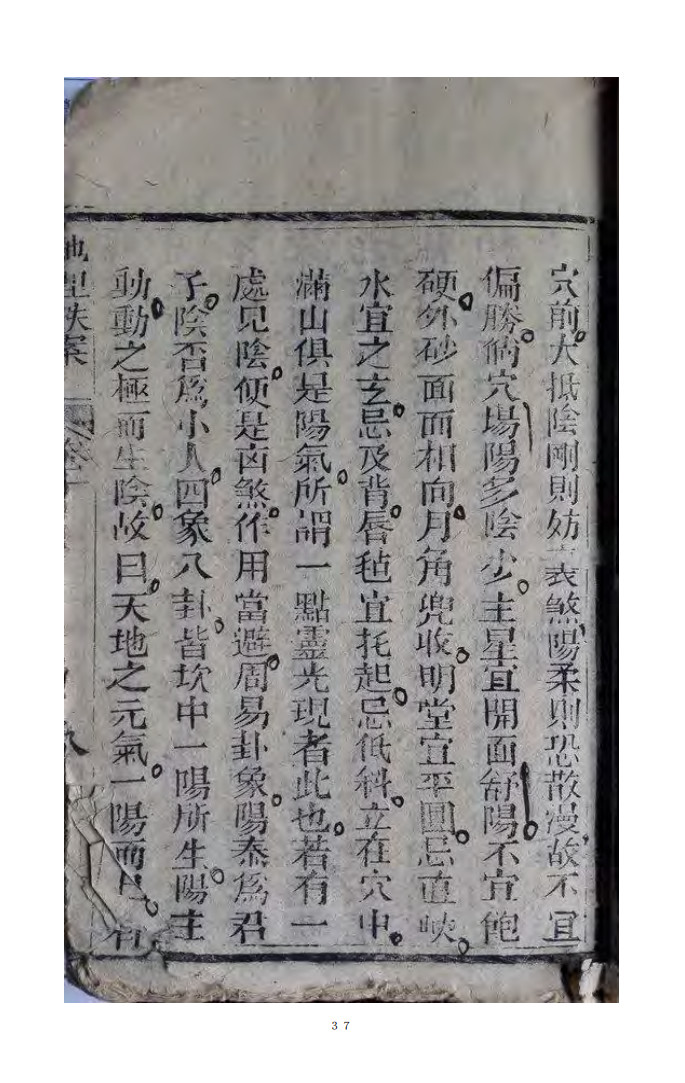 穴前大抵陰剛則妨衰煞陽柔則恐散漫故不宜
偏勝倘穴場陽多陰少主星宜開面舒陽不宜飽
硬外砂面面相向月角兜收明堂宜平圓忌直峽
水宜之玄忌及背唇毡宜托起忌低斜立在穴中
滿山俱是陽氣所謂一點靈光現者此也若有一
處見陰便是卤煞作用當避周易卦象陽泰為君
子陰否為小人四象八卦皆坎中一陽所生陽主
動動之極而生陰故曰天地之元氣一陽而
地理鉄案
卷
37